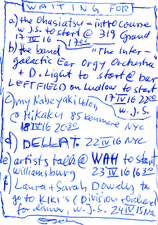 WAITING FOR
a) the Ohasiatsu - intro course
W.J.S. to start @ 319 Grand
17 IV 16
b) the band "The Inter-
galactic Ear Orgy Orchestra"
+ D. Light to start @ bar
LEFTFIELD on Ludlow to
17 IV 16 22
c) my Nabeyaki udon
@ Mikaku 85 Kenmare
18 IV 16 20 NYC
d) DELLAT. 22 IV 16 NYC
e) artists talk @ WAH to start
Williamsburg 23 IV 16 16
f) Laura + Sarah Dowells to
go to KIKI'S (Division + Orchard)
for dinner, W.J.S. 24 IV 15 NYC